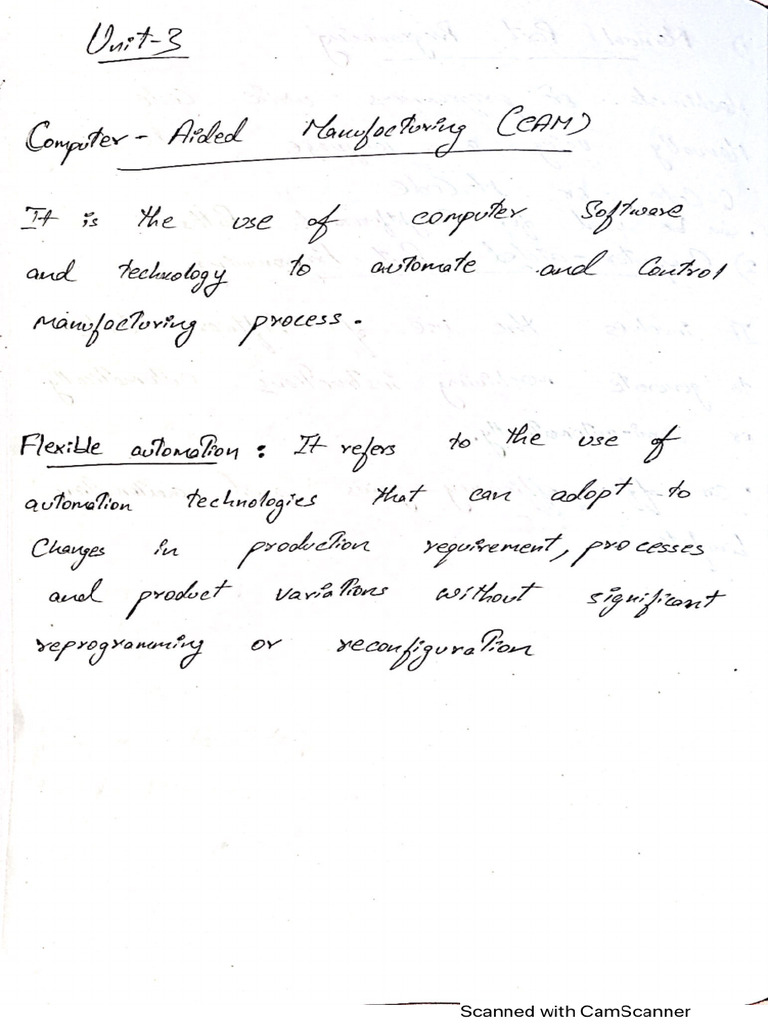 Unit-3
Computer - Aided Manufacturing (CAM)
It is the use of computer Software
and technology to automate and Control
Manufacturing process.
Flexible automation : It refers to the use of
automation technologies that can adopt to
Changes in production requirement, processes
and product variations without significant
reprogramming or reconfiguration
Scanned with CamScanner